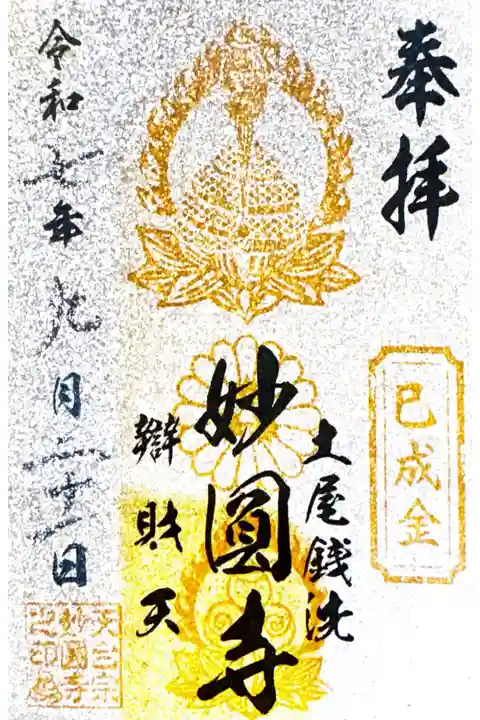 奉拝
巳成金
土尾銭洗
妙圓寺
辯財天
令和七年九月二十一日
天台宗
妙圓寺
之印